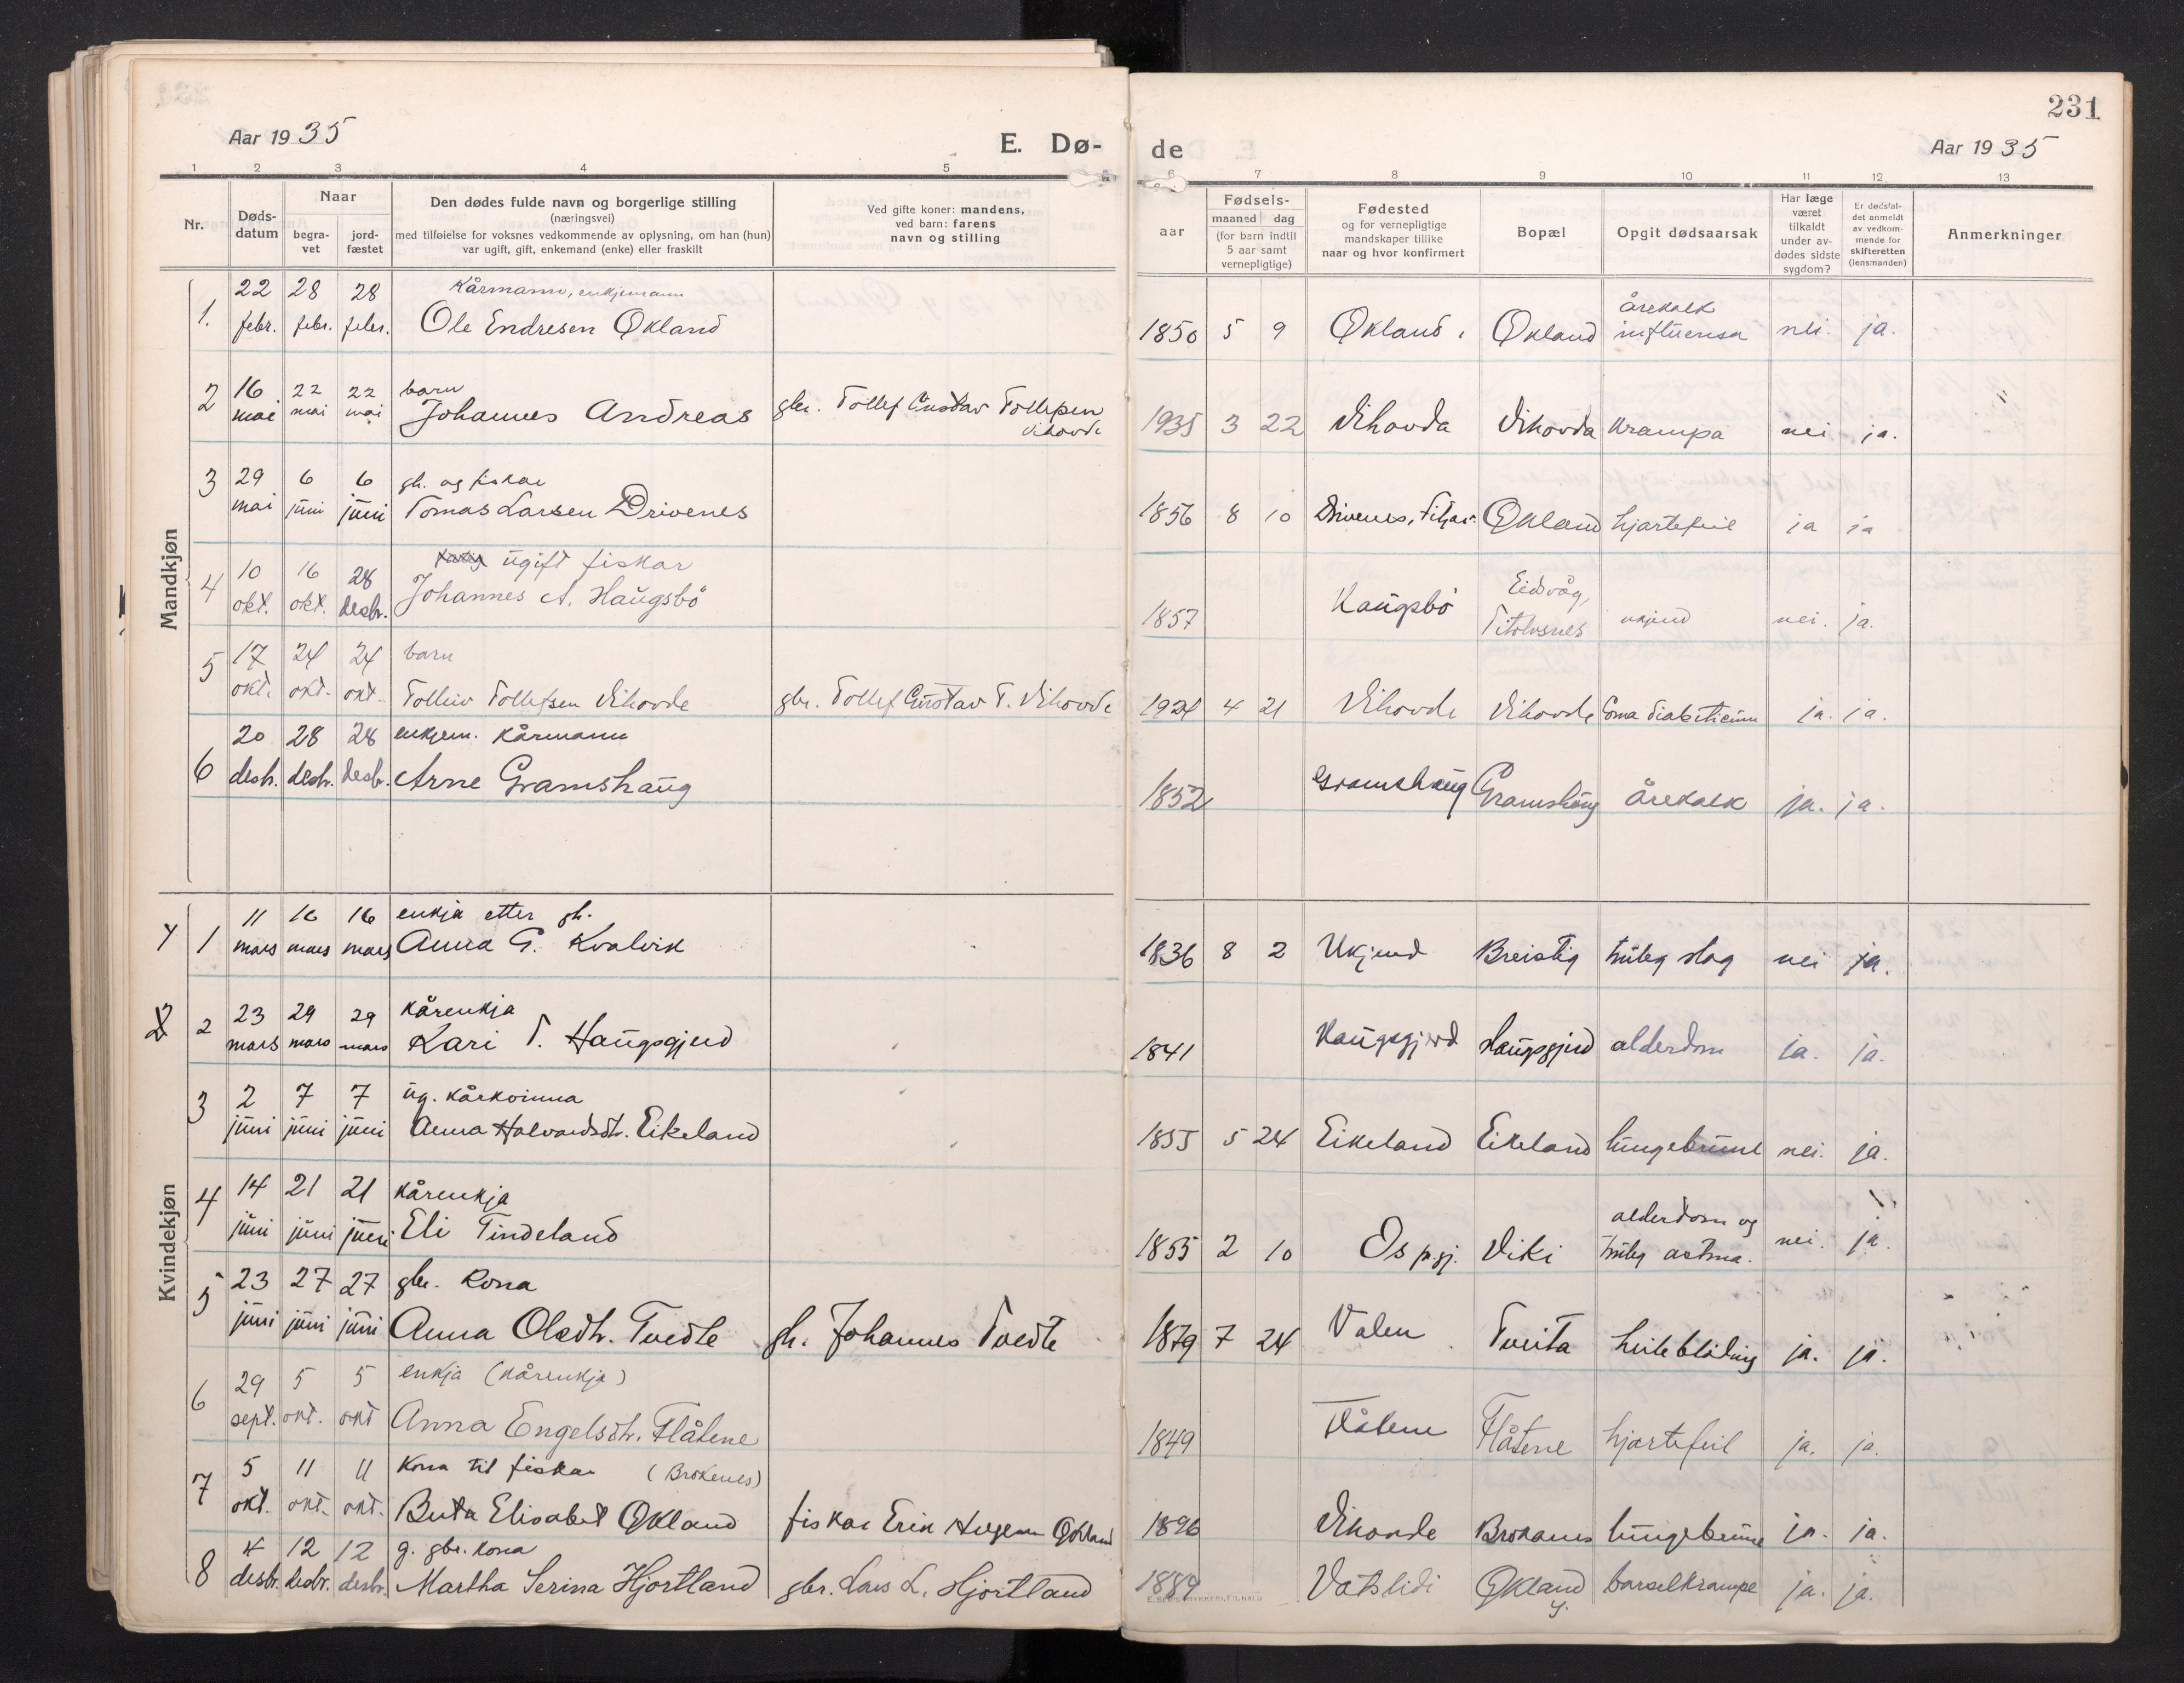 231
Aar 1935 E. Dø-
de Aar 1935
1 2 3 4 5 6
6 7 8 9 10 11 12 13
Nr.
Døds-
datum
Naar
begra-
vet
jord-
fæstet
Den dødes fulde navn og borgerlige stilling
(næringsvei)
med tilføielse for voksnes vedkommende av oplysning, om han (hun)
var ugift, gift, enkemand (enke) eller fraskilt
Ved gifte koner: mandens,
ved barn: farens
navn og stilling
Fødsels-
aar
maaned dag
(for barn indtil
5 aar samt
vernepligtige)
Fødested
og for vernepligtige
mandskaper tillike
naar og hvor konfirmert
Bopæl
Opgit dødsaarsak
Har læge
været
tilkaldt
under av-
dødes sidste
sygdom?
Er dødsfal-
det anmeldt
av vedkom-
mende for
skifteretten
(lensmanden)
Anmerkninger
Mandkjøn
22 28 28 Kårmann, enkjemann
1. febr. febr. febr. Ole Endresen Økland
årekalk
1850 5 9 Økland. Økland influensa nei. ja.
2 16 22 22 barn
mai mai mai Johannes Andreas gbr. Tollef Gustav Tollefsen
Vihovde
1935 3 22 Vihovda Vihovda Krampa nei ja.
3 29 6 6 gb. og fiskar
mai júni júni Tomas Larsen Drivenes
1856 8 10 Drivenes, Fitjar. Økland hjartefeil ja ja
4 10 16 28 ugift fiskar
okt. okt. desbr. Johannes A. Haugsbö
Eidsvåg,
1857 Haugsbö Titelsnes ukjend nei. ja.
5 17 24 24 barn
okt. okt. okt. Tolleiv Tollefsen Vihovde gbr. Tollef Gustav T. Vihovde
1921 4 21 Vihovde Vihovde Coma diabeticum ja. ja.
20 28 28 enkjem. kårmann
6 desbr. desbr. desbr. Arne Gramshaug
1852 Gramshaug Gramshaug årekalk ja. ja.
Kvindekjøn
1 11 16 16 enkja etter gb.
mars mars mars Anna G. Kvalvik
1836 8 2 Ukjend Breistig truleg slag nei ja.
2 23 29 29 kårenkja
mars mars mars Kari T. Haugsgjerd
1841 Haugsgjerd Haugsgjerd alderdom ja. ja.
3 2 7 7 ug. kårkvinna
júni júni júni Anna Halvardsdt. Eikeland
1855 5 24 Eikeland Eikeland lungebrune nei. ja.
4 14 21 21 kårenkja
júni júni júni Eli Tindeland
alderdom og
1855 2 10 Os p.gj. Viki truleg astma. nei. ja.
5 23 27 27 gbr. kona
júni júni júni Anna Olsdtr. Tvedte gb. Johannes Tvedte
1879 7 24 Valen Tveita heileblöding ja. ja.
6 29 5 5 enkja (kårenkja)
sept. okt. okt Anna Engelsdtr. Flåtene
1849 Flåtene Flåtene hjartefeil ja. ja.
7 5 11 11 Kona til fiskar (Brokenes)
okt. okt. okt. Berta Elisabet Økland fiskar Erik Økland
1896 Vihovde Brokanes lungebrune ja. ja.
4 12 12 g. gbr. kona
8 desbr. desbr. desbr. Martha Serina Hjortland gbr. Lars L. Hjortland
1889 Vatslidi Økland barselkrampe ja. ja.
y.